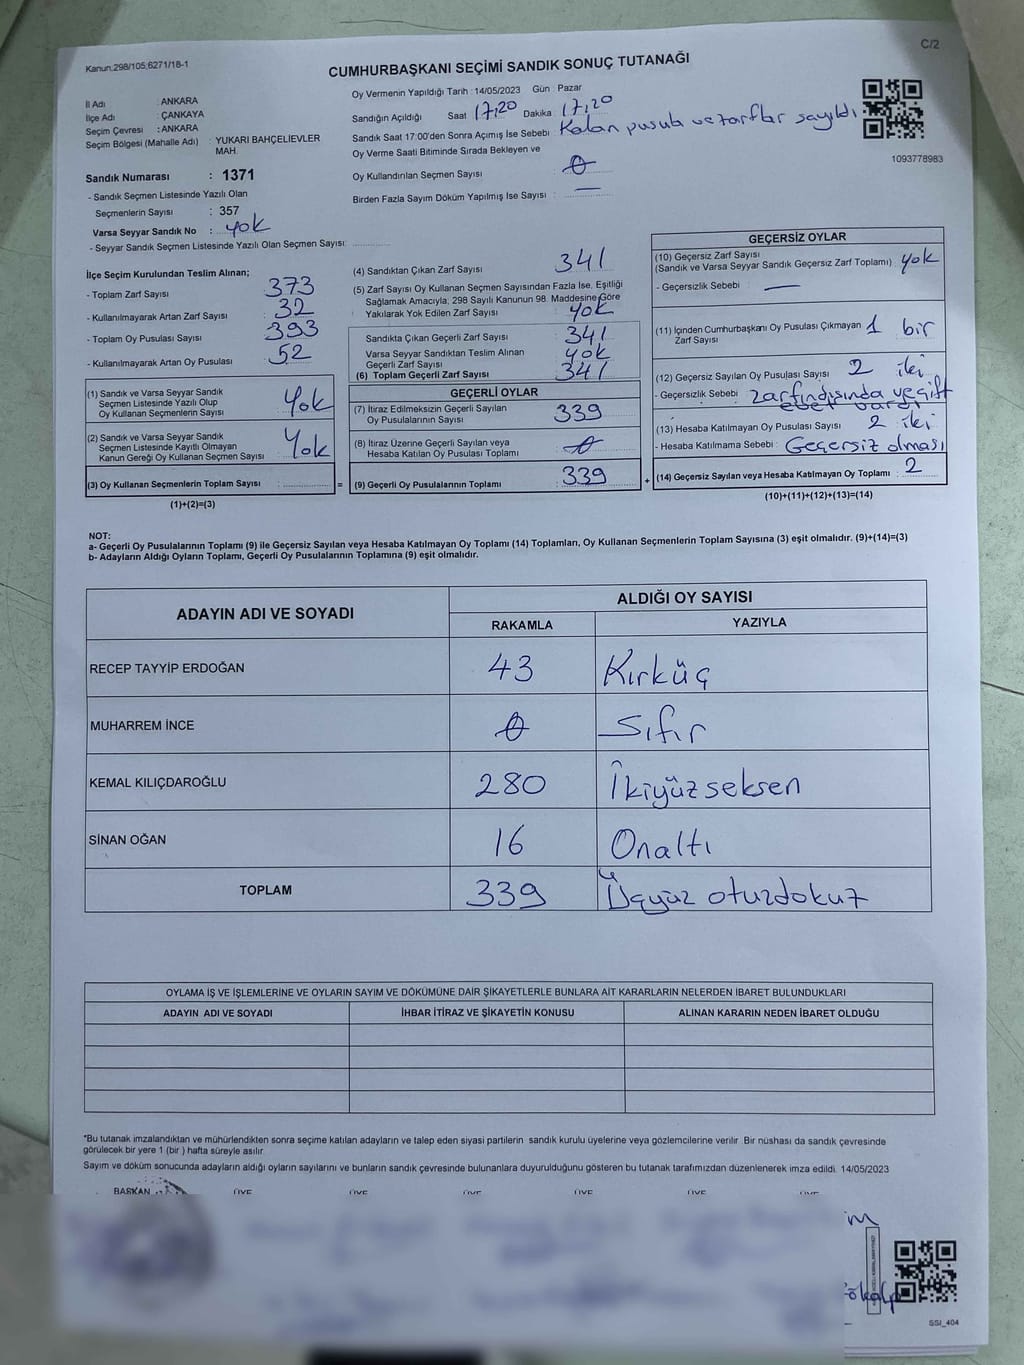 C/2
Kanun;298/105;6271/18-1
CUMHURBAŞKANI SEÇİMİ SANDIK SONUÇ TUTANAĞI
İl Adı : ANKARA
İlçe Adı : ÇANKAYA
Seçim Çevresi : ANKARA
Seçim Bölgesi (Mahalle Adı) : YUKARI BAHÇELİEVLER MAH.
Sandık Numarası : 1371
- Sandık Seçmen Listesinde Yazılı Olan
Seçmenlerin Sayısı : 357
Varsa Seyyar Sandık No : yok
- Seyyar Sandık Seçmen Listesinde Yazılı Olan Seçmen Sayısı: ..............
Oy Vermenin Yapıldığı Tarih : 14/05/2023 Gün : Pazar
Sandığın Açıldığı Saat 17,20 Dakika 17,20
Sandık Saat 17:00'den Sonra Açımış İse Sebebi : Kalan pusula ve zarflar sayıldı
Oy Verme Saati Bitiminde Sırada Bekleyen ve
Oy Kullandırılan Seçmen Sayısı : 0
Birden Fazla Sayım Döküm Yapılmış İse Sayısı : —
1093778983
İlçe Seçim Kurulundan Teslim Alınan;
- Toplam Zarf Sayısı : 373
- Kullanılmayarak Artan Zarf Sayısı : 32
- Toplam Oy Pusulası Sayısı : 393
- Kullanılmayarak Artan Oy Pusulası : 52
(1) Sandık ve Varsa Seyyar Sandık
Seçmen Listesinde Yazılı Olup
Oy Kullanan Seçmenlerin Sayısı : Yok
(2) Sandık ve Varsa Seyyar Sandık
Seçmen Listesinde Kayıtlı Olmayan
Kanun Gereği Oy Kullanan Seçmen Sayısı : Yok
(3) Oy Kullanan Seçmenlerin Toplam Sayısı : .............. =
(1)+(2)=(3)
(4) Sandıktan Çıkan Zarf Sayısı : 341
(5) Zarf Sayısı Oy Kullanan Seçmen Sayısından Fazla İse, Eşitliği
Sağlamak Amacıyla; 298 Sayılı Kanunun 98. Maddesine Göre
Yakılarak Yok Edilen Zarf Sayısı : yok
Sandıkta Çıkan Geçerli Zarf Sayısı : 341
Varsa Seyyar Sandıktan Teslim Alınan
Geçerli Zarf Sayısı : yok
(6) Toplam Geçerli Zarf Sayısı : 341
GEÇERLİ OYLAR
(7) İtiraz Edilmeksizin Geçerli Sayılan
Oy Pusulalarının Sayısı : 339
(8) İtiraz Üzerine Geçerli Sayılan veya
Hesaba Katılan Oy Pusulası Toplamı : 0
(9) Geçerli Oy Pusulalarının Toplamı : 339 +
GEÇERSİZ OYLAR
(10) Geçersiz Zarf Sayısı
(Sandık ve Varsa Seyyar Sandık Geçersiz Zarf Toplamı) : yok
- Geçersizlik Sebebi : —
(11) İçinden Cumhurbaşkanı Oy Pusulası Çıkmayan
Zarf Sayısı : 1 bir
(12) Geçersiz Sayılan Oy Pusulası Sayısı : 2 iki
- Geçersizlik Sebebi : zarfın dışında ve çift
evet vardı
(13) Hesaba Katılmayan Oy Pusulası Sayısı : 2 iki
- Hesaba Katılmama Sebebi : Geçersiz olması
(14) Geçersiz Sayılan veya Hesaba Katılmayan Oy Toplamı : 2
(10)+(11)+(12)+(13)=(14)
NOT:
a- Geçerli Oy Pusulalarının Toplamı (9) ile Geçersiz Sayılan veya Hesaba Katılmayan Oy Toplamı (14) Toplamları, Oy Kullanan Seçmenlerin Toplam Sayısına (3) eşit olmalıdır. (9)+(14)=(3)
b- Adayların Aldığı Oyların Toplamı, Geçerli Oy Pusulalarının Toplamına (9) eşit olmalıdır.
ADAYIN ADI VE SOYADI ALDIĞI OY SAYISI
RAKAMLA YAZIYLA
RECEP TAYYİP ERDOĞAN 43 Kırküç
MUHARREM İNCE 0 Sıfır
KEMAL KILIÇDAROĞLU 280 İkiyüzseksen
SİNAN OĞAN 16 Onaltı
TOPLAM 339 Üçyüz otuzdokuz
OYLAMA İŞ VE İŞLEMLERİNE VE OYLARIN SAYIM VE DÖKÜMÜNE DAİR ŞİKAYETLERLE BUNLARA AİT KARARLARIN NELERDEN İBARET BULUNDUKLARI
ADAYIN ADI VE SOYADI İHBAR İTİRAZ VE ŞİKAYETİN KONUSU ALINAN KARARIN NEDEN İBARET OLDUĞU
*Bu tutanak imzalandıktan ve mühürlendikten sonra seçime katılan adayların ve talep eden siyasi partilerin sandık kurulu üyelerine veya gözlemcilerine verilir. Bir nüshası da sandık çevresinde
görülecek bir yere 1 (bir ) hafta süreyle asılır.
Sayım ve döküm sonucunda adayların aldığı oyların sayılarını ve bunların sandık çevresinde bulunanlara duyurulduğunu gösteren bu tutanak tarafımızdan düzenlenerek imza edildi. 14/05/2023
BAŞKAN ÜYE ÜYE ÜYE ÜYE ÜYE ÜYE
SSI_404